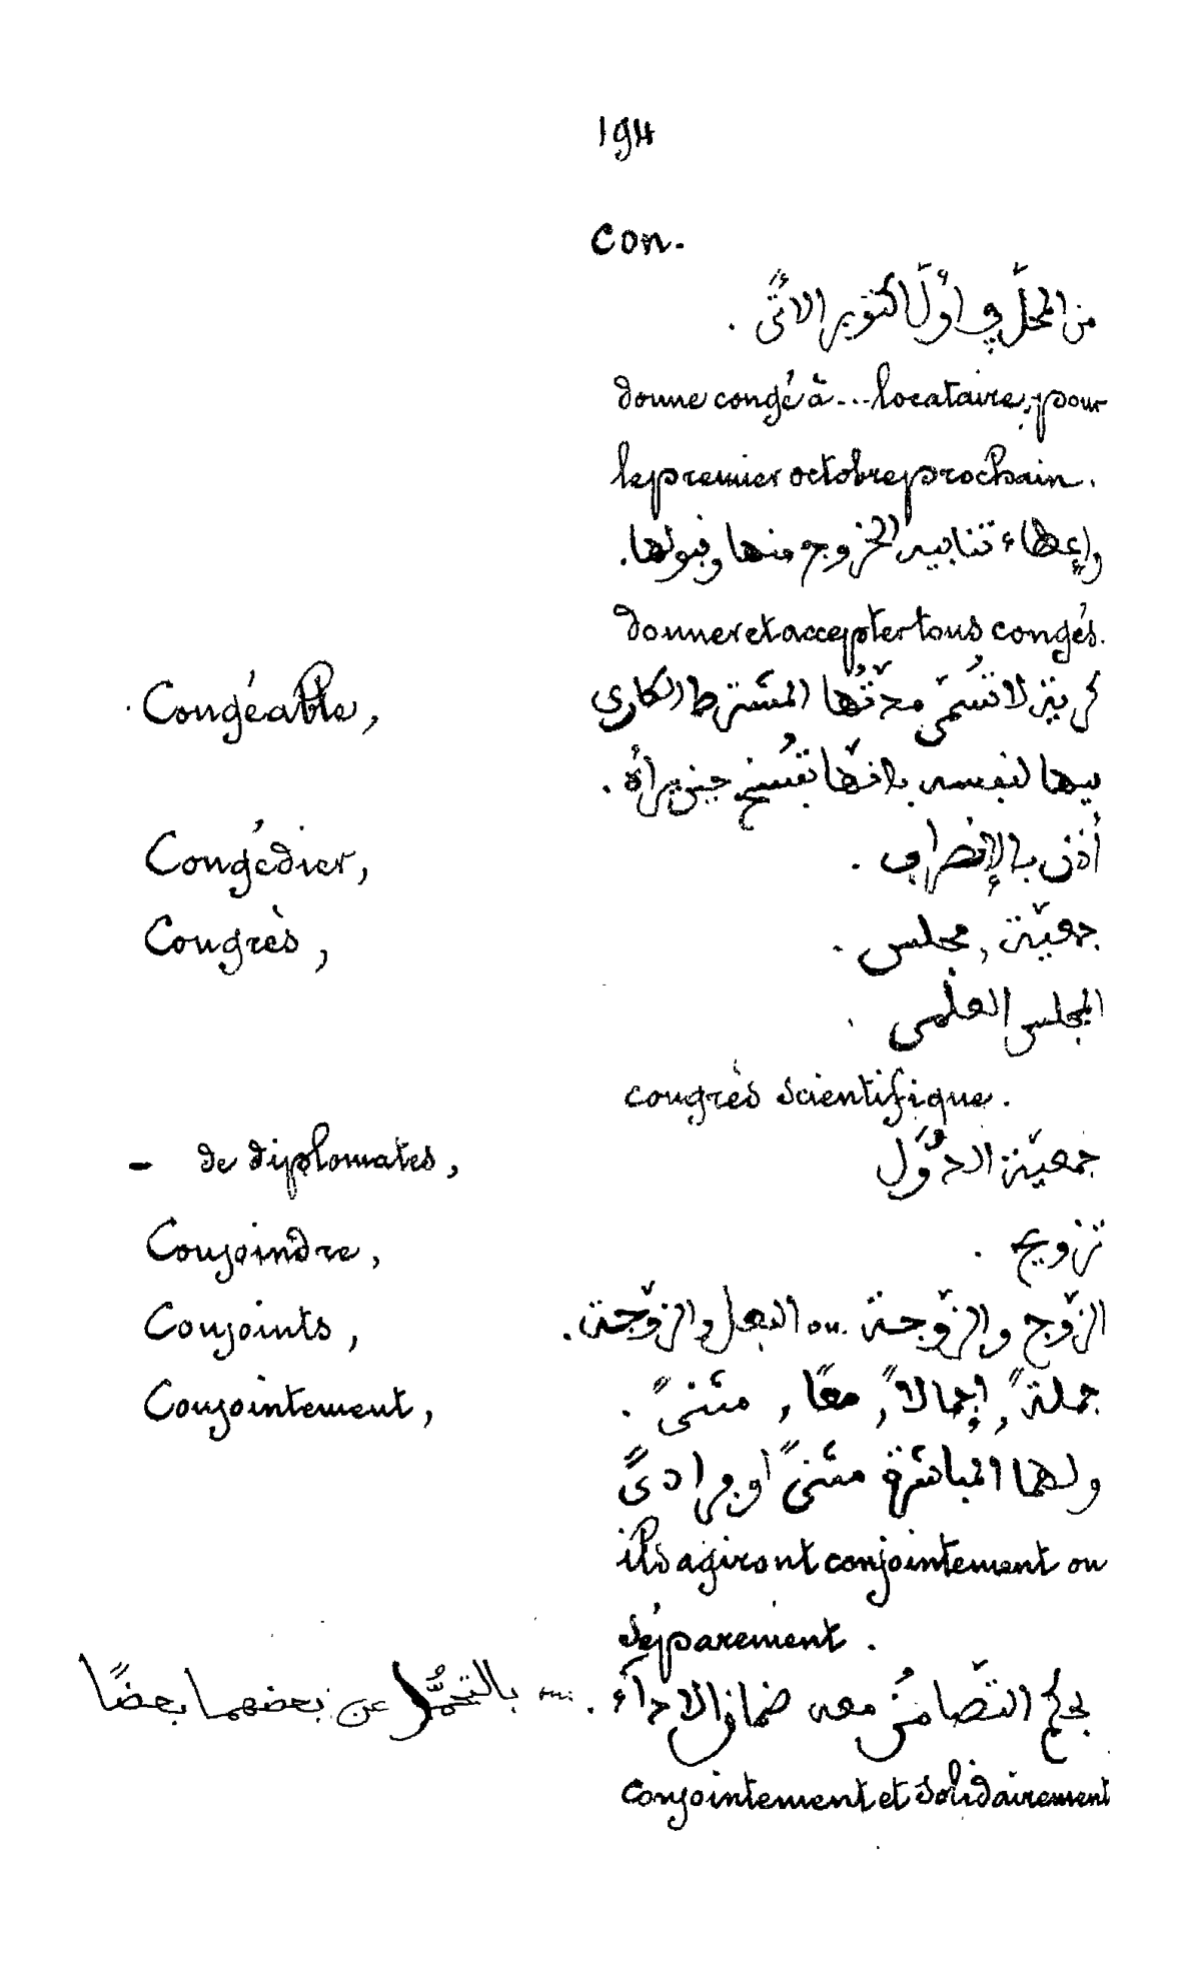 194
con.
من المحلّ في أوّل اكتوبر الأتي .
donne congé à ... locataire, pour
le premier octobre prochain.
وإعطاء تنابيه الخروج منها وقبولها.
donner et accepter tous congés.
Congéable, كريتة لا تسمّى مدّتُها المشترط الكاري
فيها لنفسه بانّها تفسُخ حين يرأه .
Congédier, أذن بالإنصراف .
Congrès, جمعيّة , مجلس .
المجلس العلمي .
congrès scientifique.
- de diplomates, جمعيّة الدُّوَل
Conjoindre, تزويج .
Conjoints, الزّوج والزّوجة ou البعل والزّوجة.
Conjointement, جملةً , إجمالاً , معًا , مثنىً .
ولهما المباشرة مثنىً او فرادىً
ils agiront conjointement ou
séparément.
بحكم التّضامُن معه ضمان الاداء . ou بالتحمُّل عن بعضهما بعضًا
conjointement et solidairement